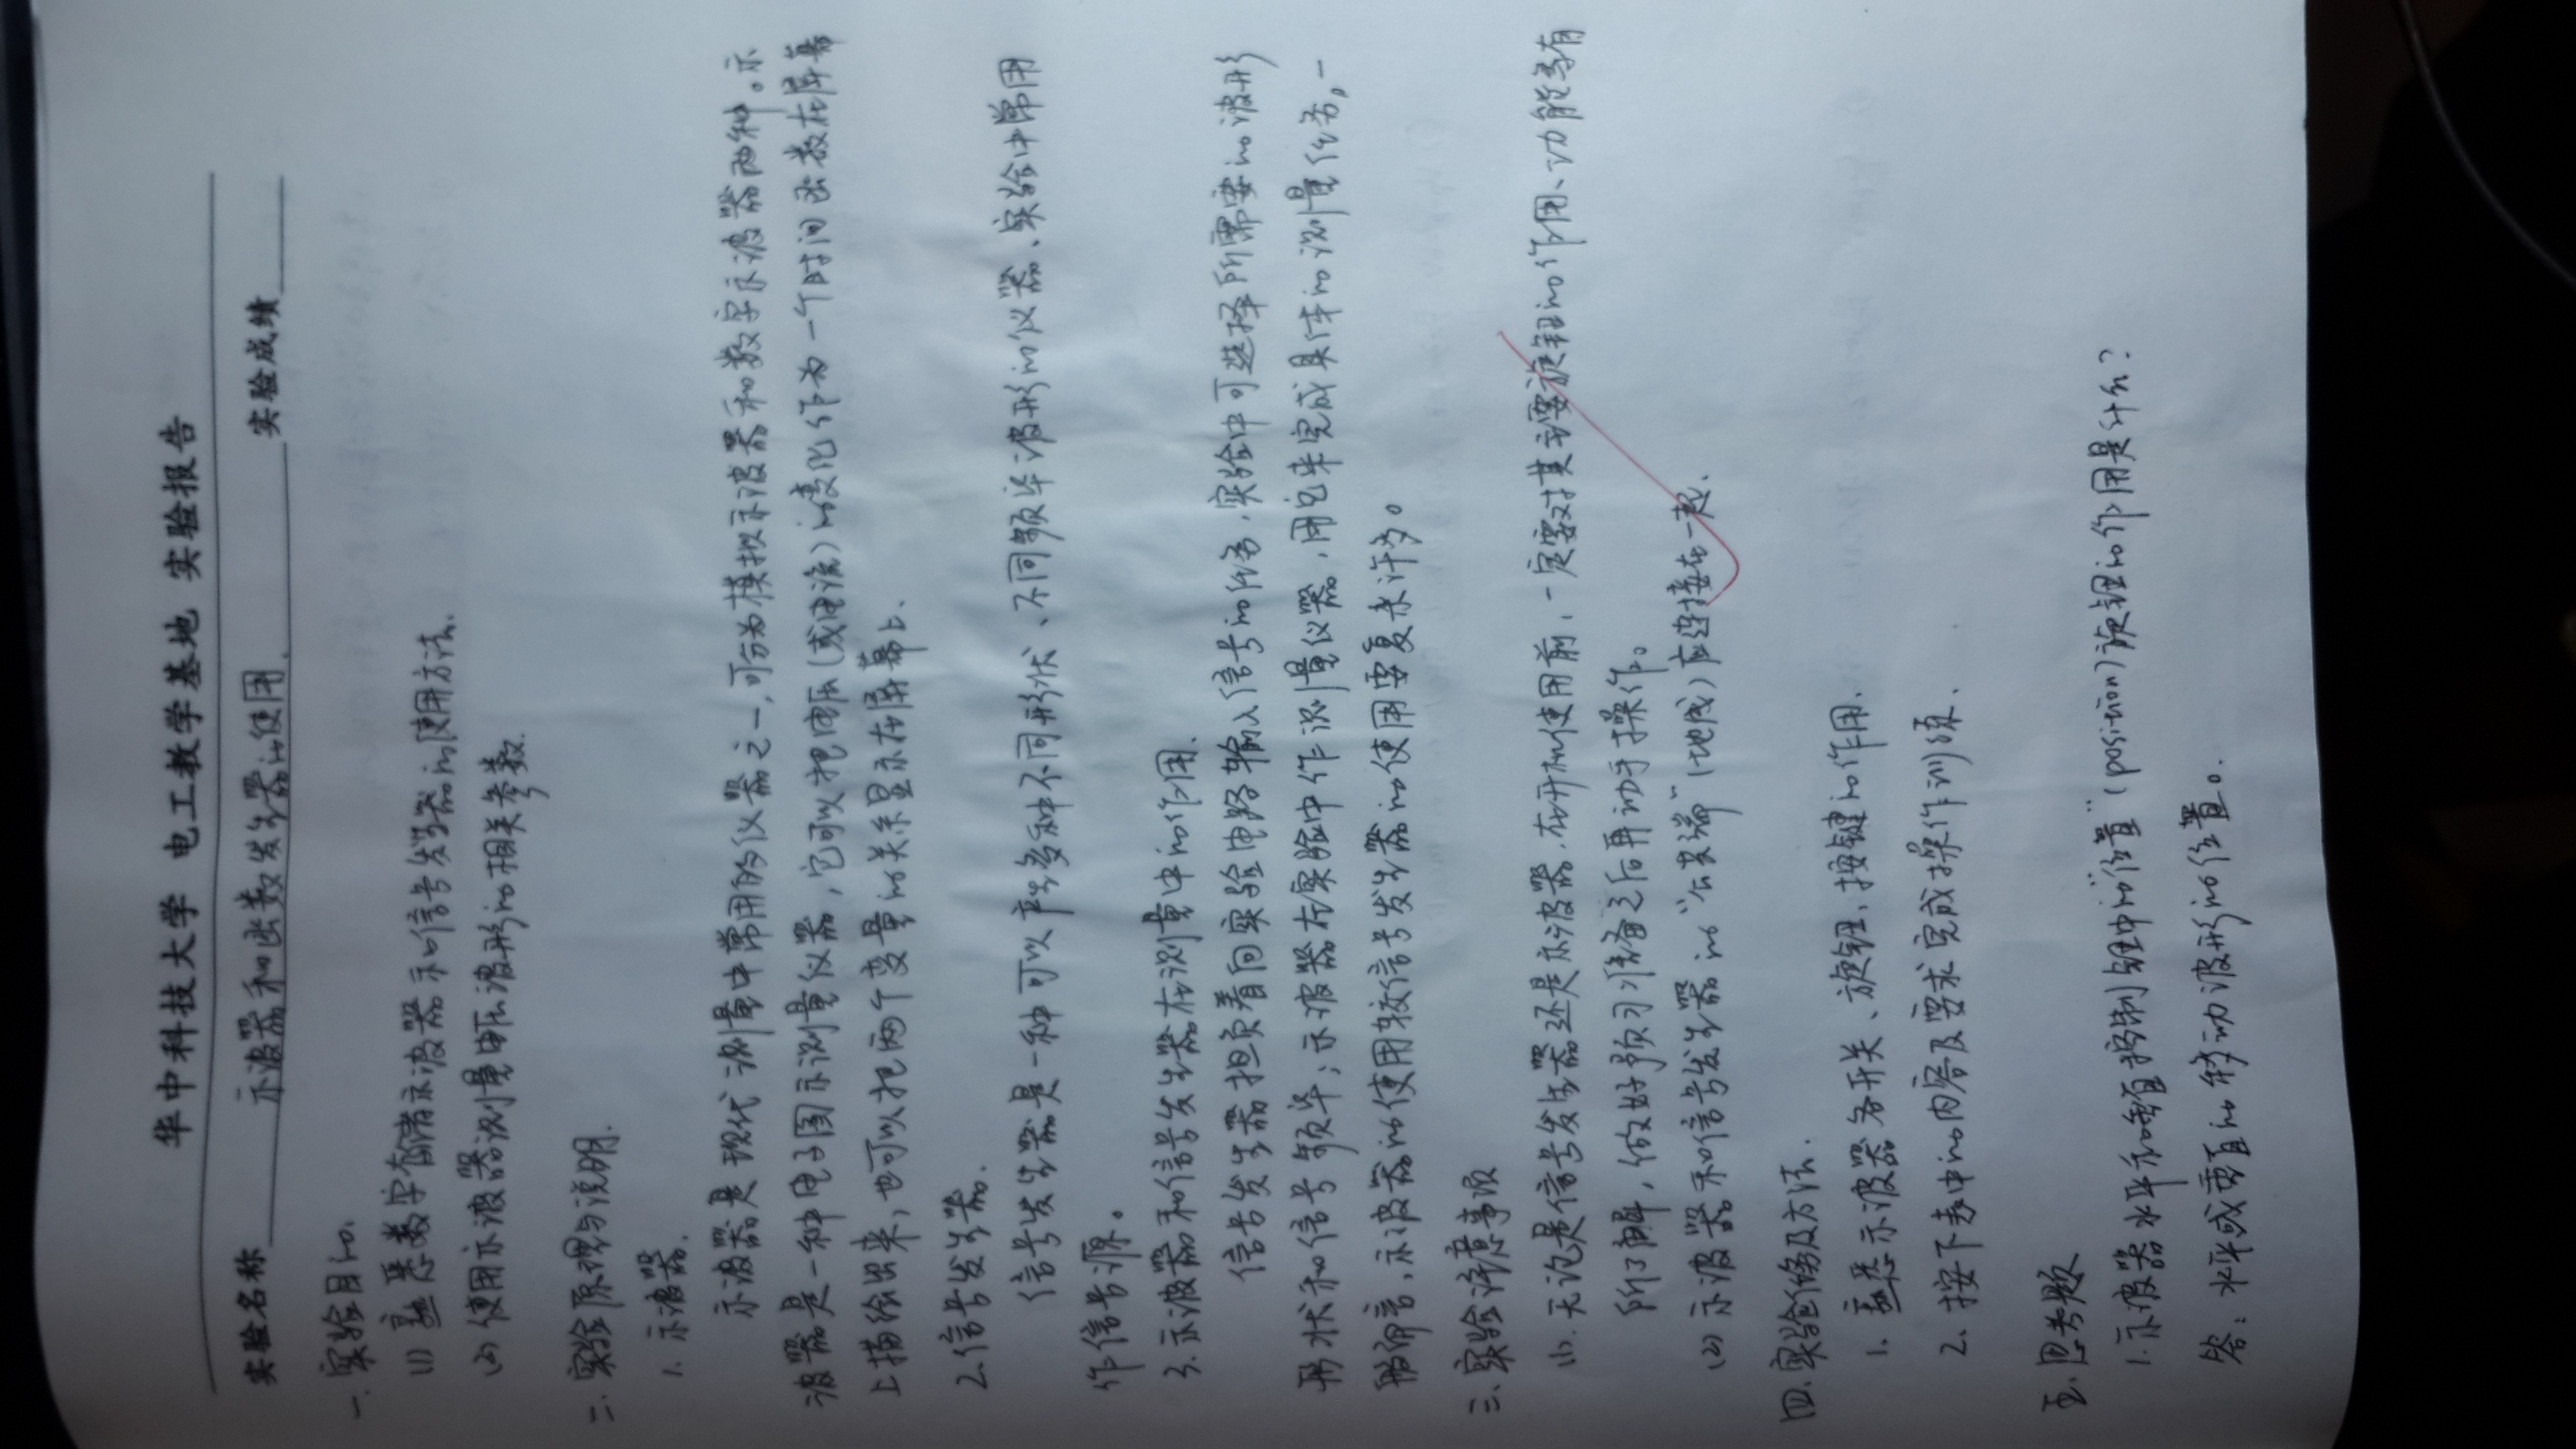 华中科技大学 电工教学基地 实验报告
实验名称 示波器和函数发生器的使用. 实验成绩
一. 实验目的.
(1) 熟悉数字存储示波器和信号发生器的使用方法.
(2) 使用示波器测量电压波形的相关参数.
二. 实验原理与说明.
1. 示波器.
示波器是现代测量中常用的仪器之一,可分为模拟示波器和数字示波器两种。示
波器是一种电子图示测量仪器,它可以把电压(或电流)的变化作为一个时间函数在屏幕
上描绘出来,也可以把两个变量的关系显示在屏幕上.
2. 信号发生器.
信号发生器是一种可以产生多种不同形状、不同频率波形的仪器、实验中常用
作信号源。
3. 示波器和信号发生器在测量中的作用.
信号发生器担负着向实验电路输入信号的任务,实验中可选择所需要的波形
形状和信号频率;示波器在实验中作测量仪器,用它来完成具体的测量任务。一
般而言,示波器的使用较信号发生器的使用要复杂许多。
三、实验注意事项
(1). 无论是信号发生器还是示波器,在开机使用前,一定要对其主要旋钮的作用、功能等有
所了解,做好预习准备之后再动手操作。
(2) 示波器和信号发生器的“公共端”(地线)应连接在一起.
四. 实验任务及方法.
1. 熟悉示波器各开关、旋钮、按键的作用.
2. 按下表中的内容及要求完成操作训练.
五. 思考题
1. 示波器水平和垂直控制钮中的“位置”(position)旋钮的作用是什么?
答: 水平或垂直的移动波形的位置。